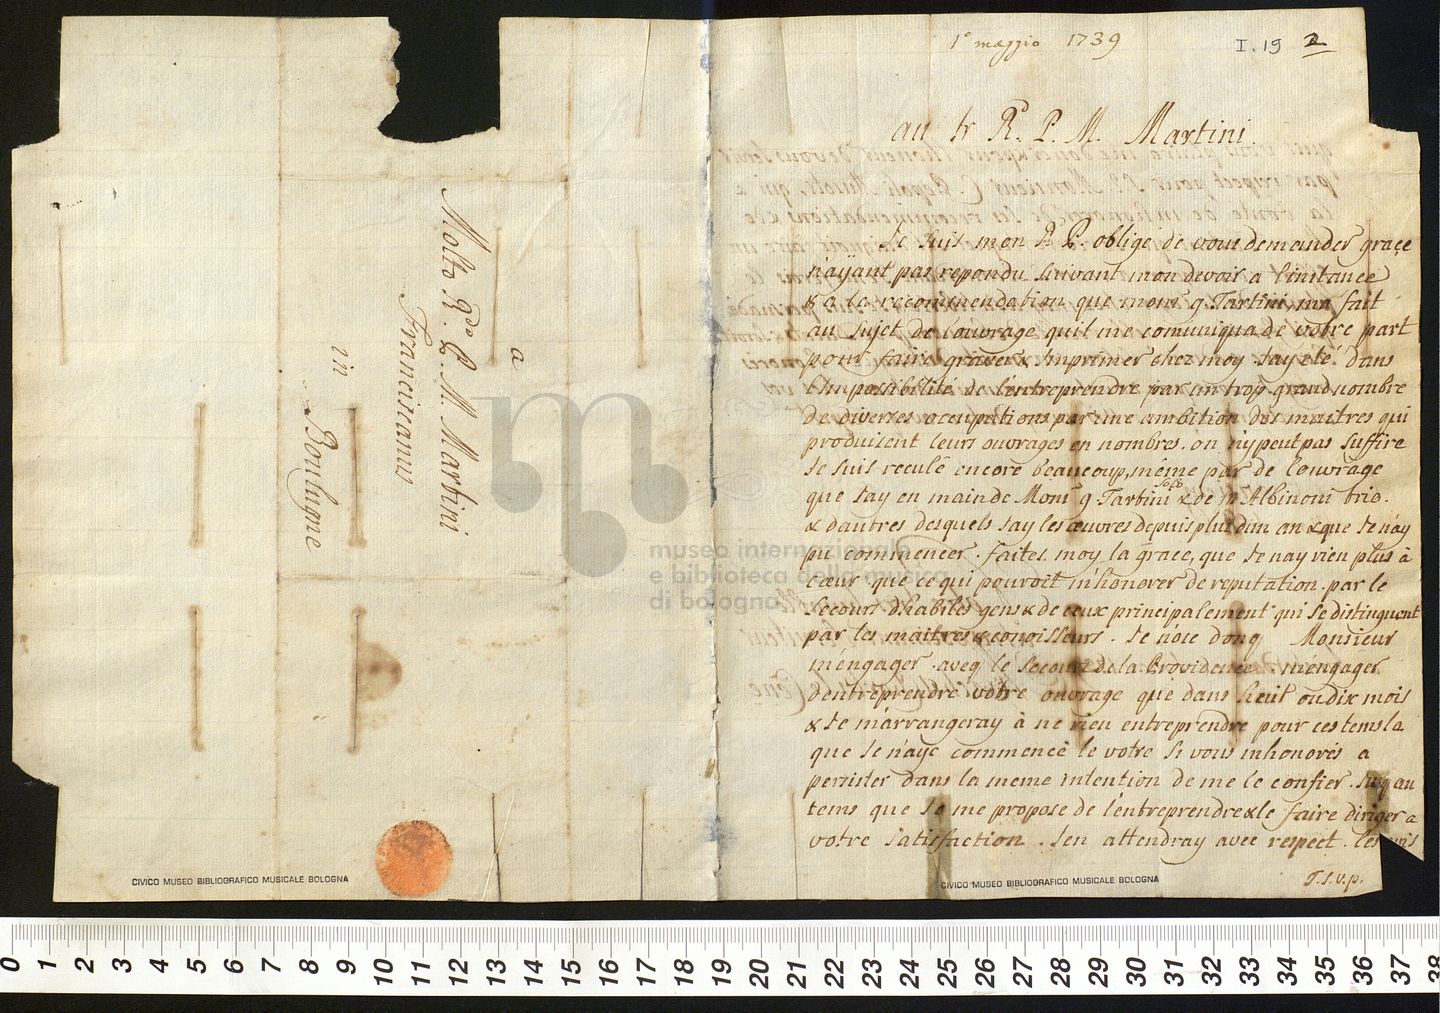 1° maggio 1739
I. 19 2
au tr Rd. P. M. Martini.
Je suis mon R. P. obligé de vous demander grace
n'ayant pas repondu suivant mon devoir a l'instance
& a la recommendation que mons. g. Tartini ma fait
au sujet de l'ouvrage quil me comuniqua de votre part
pour faire graver & imprimer chez moy. Jay été dans
l'impossibilité de l'entreprendre par un trop grand nombre
de diverses occupations par une ambition des maitres qui
produisent leurs ouvrages en nombres. on n'y peut pas suffire
Je suis reculé encore beaucoup, même par de l'ouvrage
que Jay en main de Mons. g. Tartini & de Albinoni trio.
& dautres desquels Jay les œuvres depuis plus d'un an & que Je n'ay
pu commencer. faites moy la grace, que Je nay rien plus à
cœur que ce qui pouroit m'honorer de reputation par le
secours d'habiles gens & de ceux principalement qui se distinguent
par les maitres & conoisseurs. Je n'ose donq Monsieur
m'engager aveq le secours de la Providence m'engager
d'entreprendre votre ouvrage que dans heuit ou dix mois
& Je m'arrangeray à ne rien entreprendre pour ces tems la
que Je n'aye commencé le votre si vous m'honorés a
persister dans la meme intention de me le confier. Jusq au
tems que Je me propose de l'entreprendre & le faire diriger a
votre satisfaction. J'en attendray avec respect les avis
T.S.V.P.
a
Molto Rdo P. M. Martini
Franciscanus
in
Boulugne
museo internazionale
e biblioteca della musica
di bologna
CIVICO MUSEO BIBLIOGRAFICO MUSICALE BOLOGNA
CIVICO MUSEO BIBLIOGRAFICO MUSICALE BOLOGNA
0 1 2 3 4 5 6 7 8 9 10 11 12 13 14 15 16 17 18 19 20 21 22 23 24 25 26 27 28 29 30 31 32 33 34 35 36 37 38